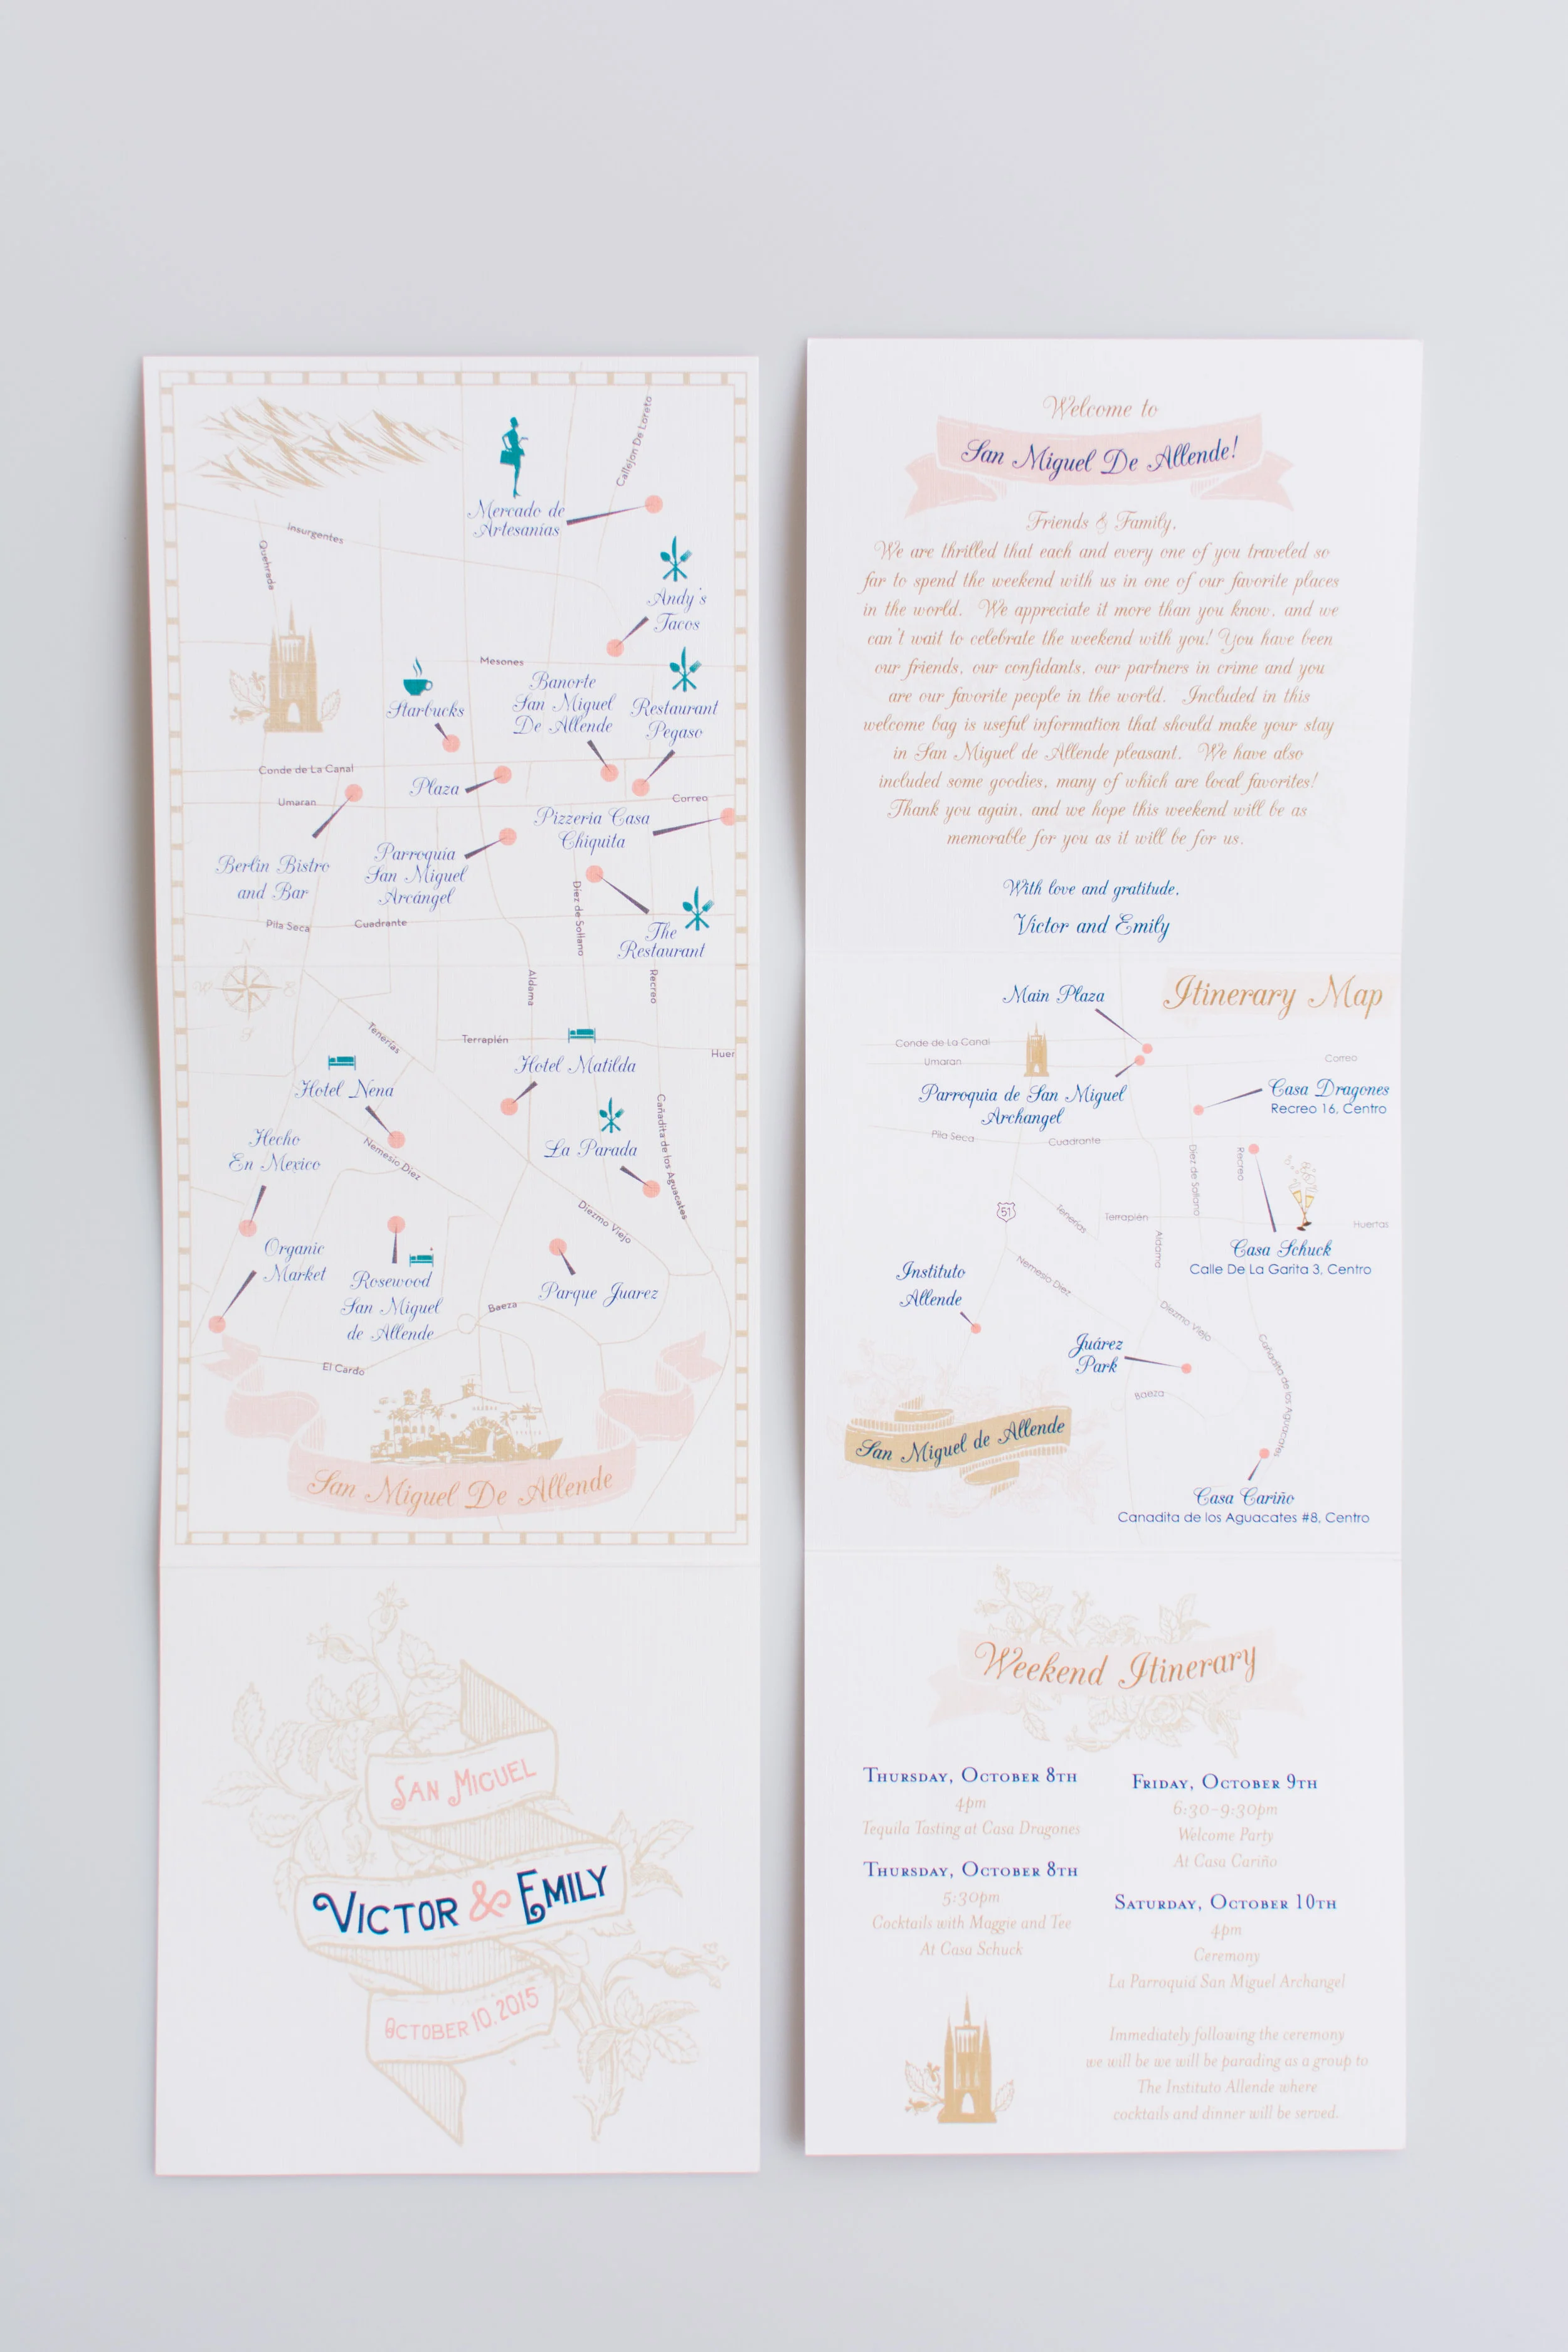 Callejon De Loreto
Mercado de
Artesanías
Insurgentes
Quebrada
Andy's
Tacos
Mesones
Starbucks
Banorte
San Miguel
De Allende
Restaurant
Pegaso
Conde de La Canal
Plaza
Umaran
Correo
Pizzeria Casa
Chiquita
Berlin Bistro
and Bar
Parroquia
San Miguel
Arcángel
Diez de Sollano
Pila Seca
Cuadrante
The
Restaurant
N
W
E
S
Aldama
Recreo
Tenerías
Terraplén
Huer
Hotel Matilda
Hotel Nena
Cañadita de los Aguacates
Hecho
En Mexico
Nemesio Diez
La Parada
Diezmo Viejo
Organic
Market
Rosewood
San Miguel
de Allende
Parque Juarez
Baeza
El Cardo
San Miguel De Allende
San Miguel
Victor & Emily
October 10.2015
Welcome to
San Miguel De Allende!
Friends & Family,
We are thrilled that each and every one of you traveled so
far to spend the weekend with us in one of our favorite places
in the world. We appreciate it more than you know, and we
can't wait to celebrate the weekend with you! You have been
our friends, our confidants, our partners in crime and you
are our favorite people in the world. Included in this
welcome bag is useful information that should make your stay
in San Miguel de Allende pleasant. We have also
included some goodies, many of which are local favorites!
Thank you again, and we hope this weekend will be as
memorable for you as it will be for us.
With love and gratitude,
Victor and Emily
Itinerary Map
Main Plaza
Conde de La Canal
Umaran
Correo
Parroquia de San Miguel
Archangel
Casa Dragones
Recreo 16, Centro
Pila Seca
Cuadrante
Diez de Sollano
Recreo
51
Tenerías
Terraplén
Huertas
Aldama
Casa Schuck
Calle De La Garita 3, Centro
Instituto
Allende
Nemesio Diez
Diezmo Viejo
Juárez
Park
Cañadita de los Aguacates
Baeza
San Miguel de Allende
Casa Cariño
Canadita de los Aguacates #8, Centro
Weekend Itinerary
Thursday, October 8th
4pm
Tequila Tasting at Casa Dragones
Thursday, October 8th
5:30pm
Cocktails with Maggie and Tee
At Casa Schuck
Friday, October 9th
6:30-9:30pm
Welcome Party
At Casa Cariño
Saturday, October 10th
4pm
Ceremony
La Parroquia San Miguel Archangel
Immediately following the ceremony
we will be we will be parading as a group to
The Instituto Allende where
cocktails and dinner will be served.